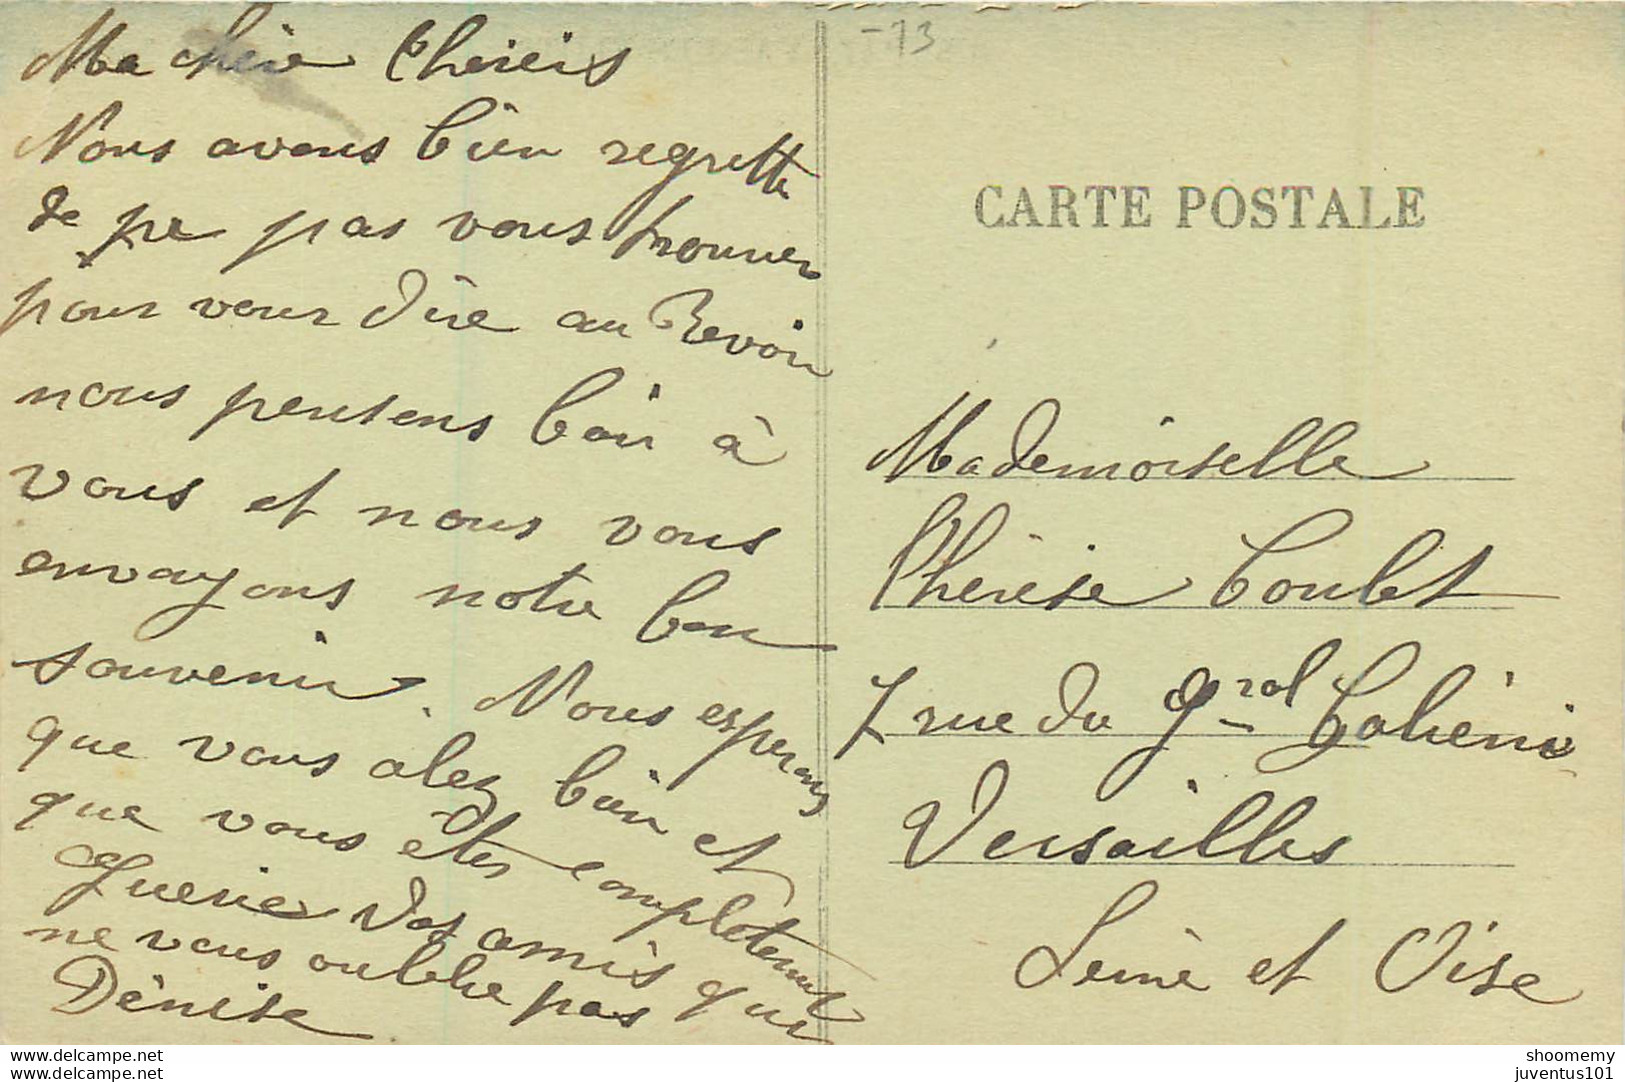 Ma chère Thérèis
Nous avons bien regretté
de ne pas vous trouver
pour vous dire au Revoir
nous pensons bein à
vous et nous vous
envoyons notre bon
souvenir. Nous esperons
que vous alez bien et
que vous êtes completement
guerie Vos amis qui
ne vous oublie pas
Dénise
-13
CARTE POSTALE
Mademoiselle
Thérèse Coulet
7 rue du Gral
Versailles
Seine et Oise
www.delcampe.net
www.delcampe.net
shoomemy
juventus101